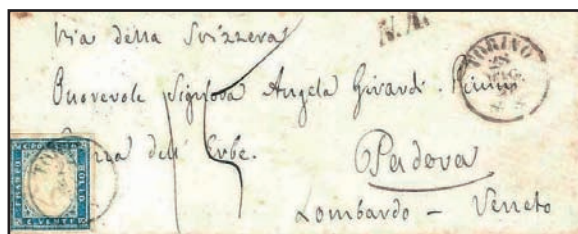 Via della Svizzera
N. A.
Onorevole Signora Angela Girardi
Piazza dell' Erbe.
15
Padova
Lombardo – Veneto
TORINO
28
MAG
FRANCO
BOLLO
C. VENTI